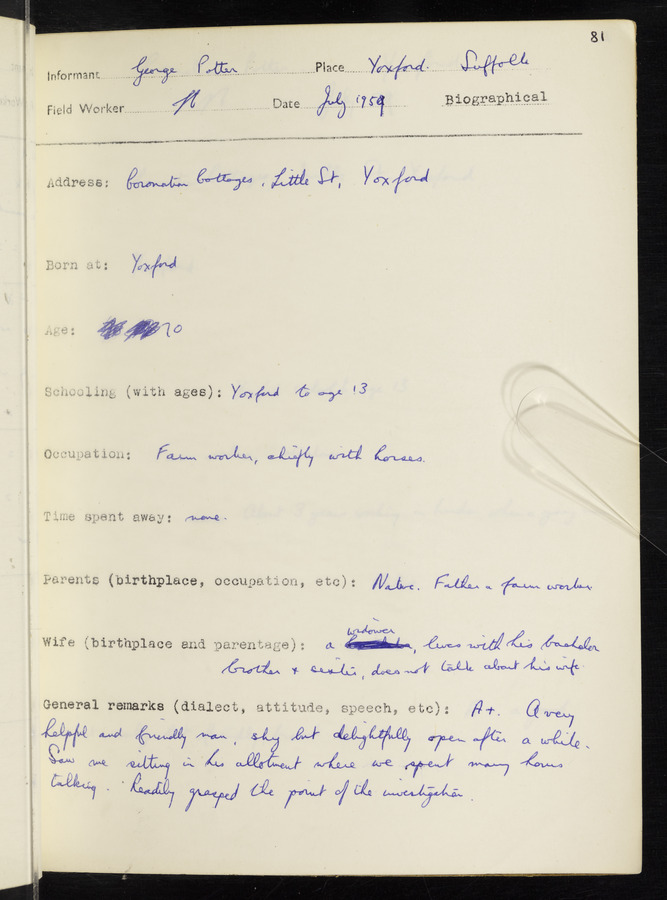 81
Informant George Potter Place Yoxford. Suffolk
Field Worker Date July 1959 Biographical
Address: Coronation Cottages, Little St, Yoxford
Born at: Yoxford
Age: 70
Schooling (with ages): Yoxford to age 13
Occupation: Farm worker, chiefly with horses.
Time spent away: none.
Parents (birthplace, occupation, etc): Native. Father a farm worker
widower
Wife (birthplace and parentage): a , lives with his bachelor
brother + sister, does not talk about his wife.
General remarks (dialect, attitude, speech, etc): A+. A very
helpful and friendly man, shy but delightfully open after a while.
Saw me sitting in his allotment where we spent many hours
talking. Readily grasped the point of the investigation.